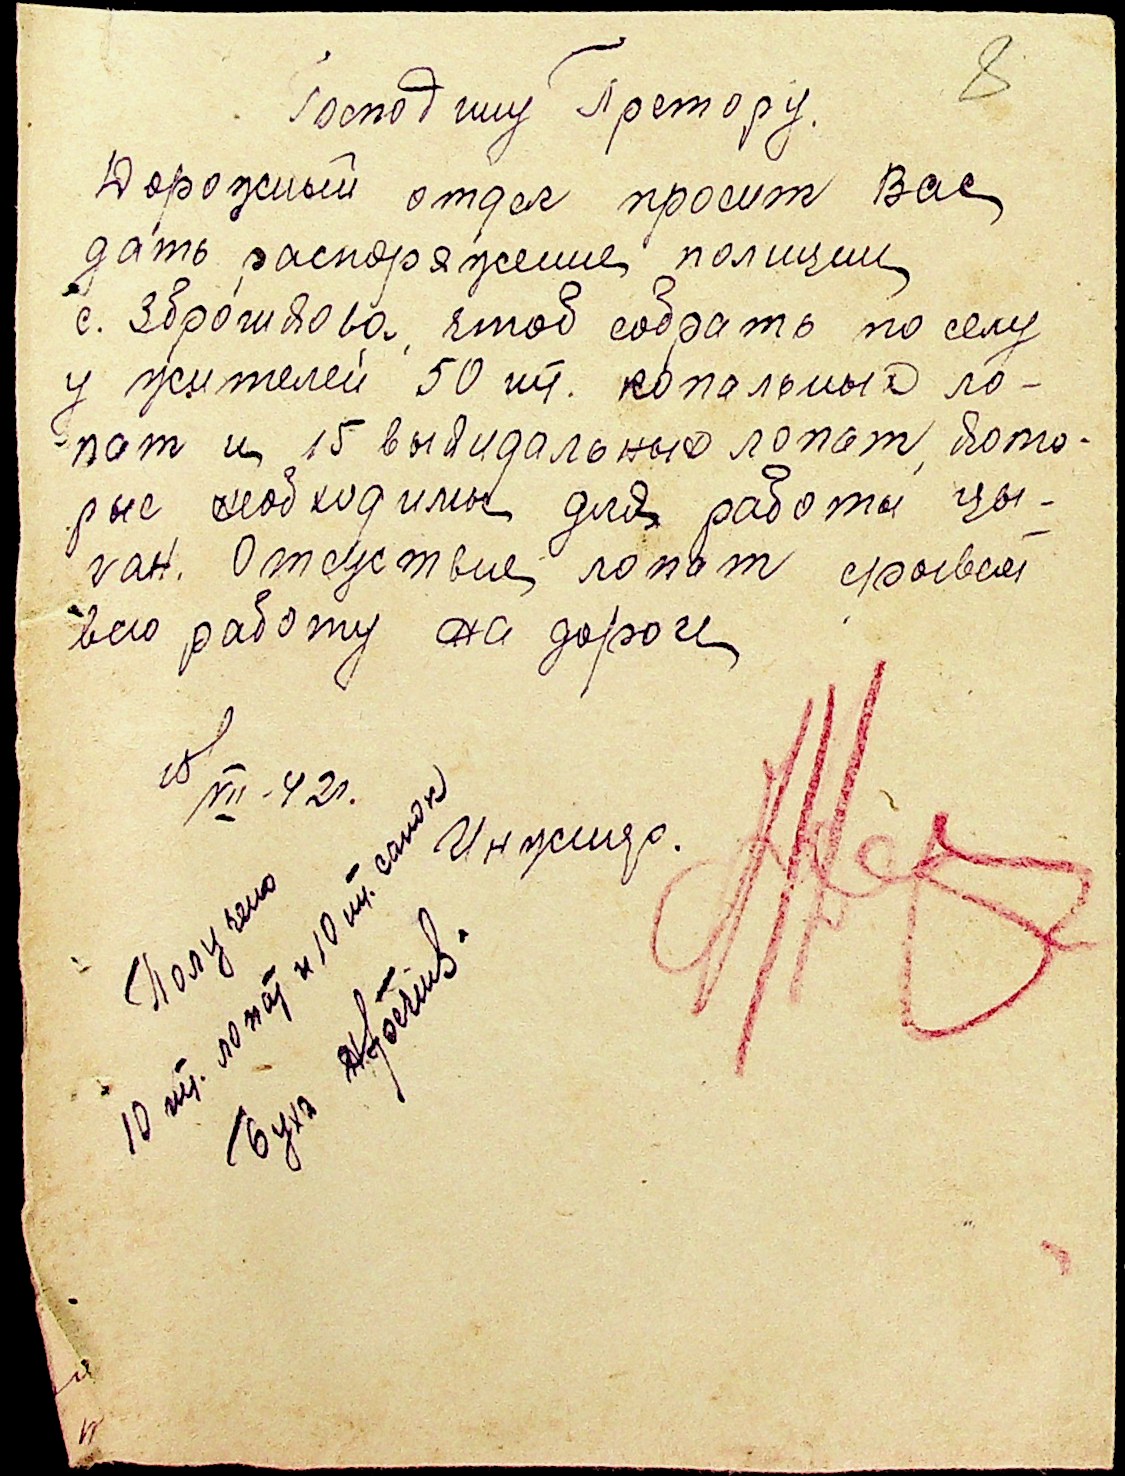 8
Господину Претору.
Дорожный отдел просит Вас
дать распоряжение полиции
с. Зброшкова, чтоб собрать по селу
у жителей 50 шт. копальных ло-
пат и 15 выкидальных лопат, кото-
рые необходимы для работы цы-
ган. Отсуствие лопат срывает
всю работу на дороге
VII - 42г.
Инженер.
Получено
10 шт. лопат и 10 шт. сапок
Бух